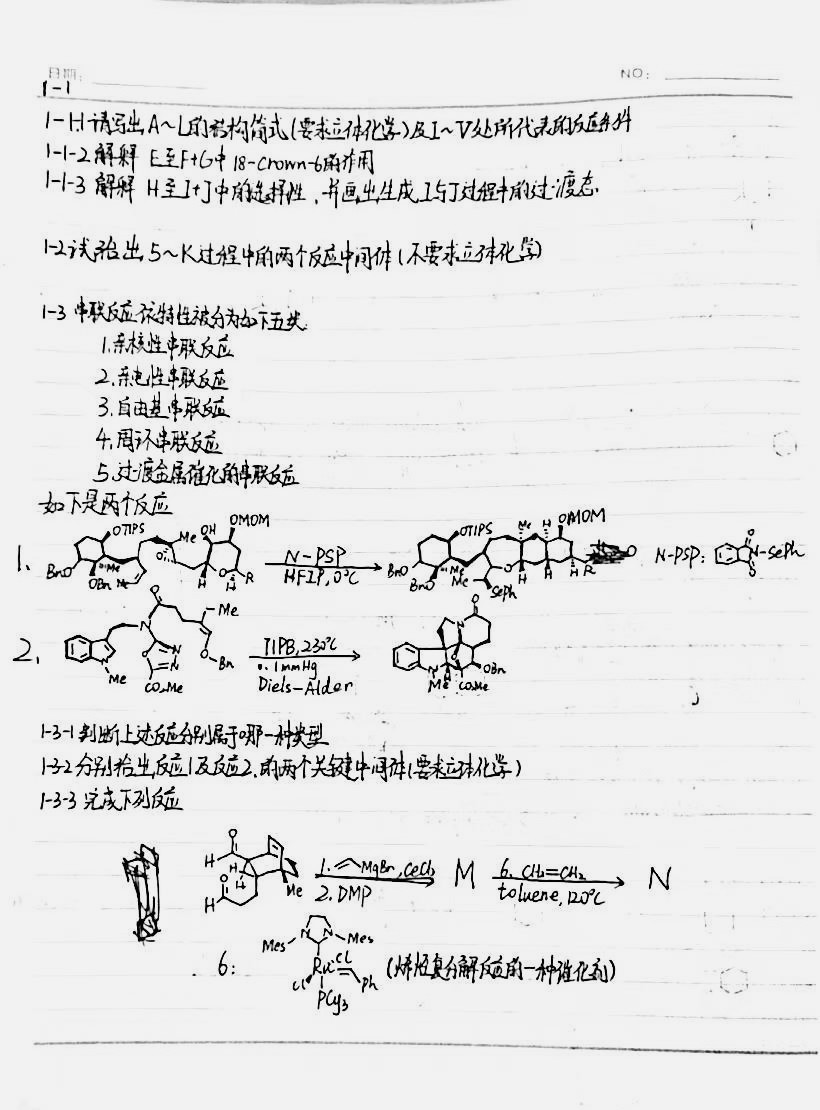 日期: NO:
1-1
1-1-1 请写出 A~L的结构简式(要求立体化学)及 I~V处所代表的反应条件
1-1-2 解释 E至F+G中 18-crown-6的作用
1-1-3 解释 H至I+J中的选择性,并画出生成I与J过程中的过渡态.
1-2 试给出 5~K过程中的两个反应中间体(不要求立体化学)
1-3 串联反应依特性被分为如下五类
1.亲核性串联反应
2.亲电性串联反应
3.自由基串联反应
4.周环串联反应
5.过渡金属催化的串联反应
如下是两个反应
1.
OTIPS Me OH OMOM
BnO OBn Me Me O H O H R
N-PSP
HFIP, 0℃
OTIPS Me H OMOM
BnO BnO Me Me O SePh H H H R O
N-PSP: O N-SePh O
2.
O Me N N Me O N N CO₂Me O Bn
TIPB, 230℃
0.1mmHg
Diels-Alder
O N N Me H O CO₂Me OBn
1-3-1 判断上述反应分别属于哪一种类型
1-3-2 分别给出反应1及反应2.的两个关键中间体(要求立体化学)
1-3-3 完成下列反应
O H H H O H Me
1. MgBr, CeCl₃
2. DMP
M
6. CH₂=CH₂
toluene, 120℃
N
6: Mes N N Mes Cl Ru Cl Ph PCy₃
(烯烃复分解反应的一种催化剂)